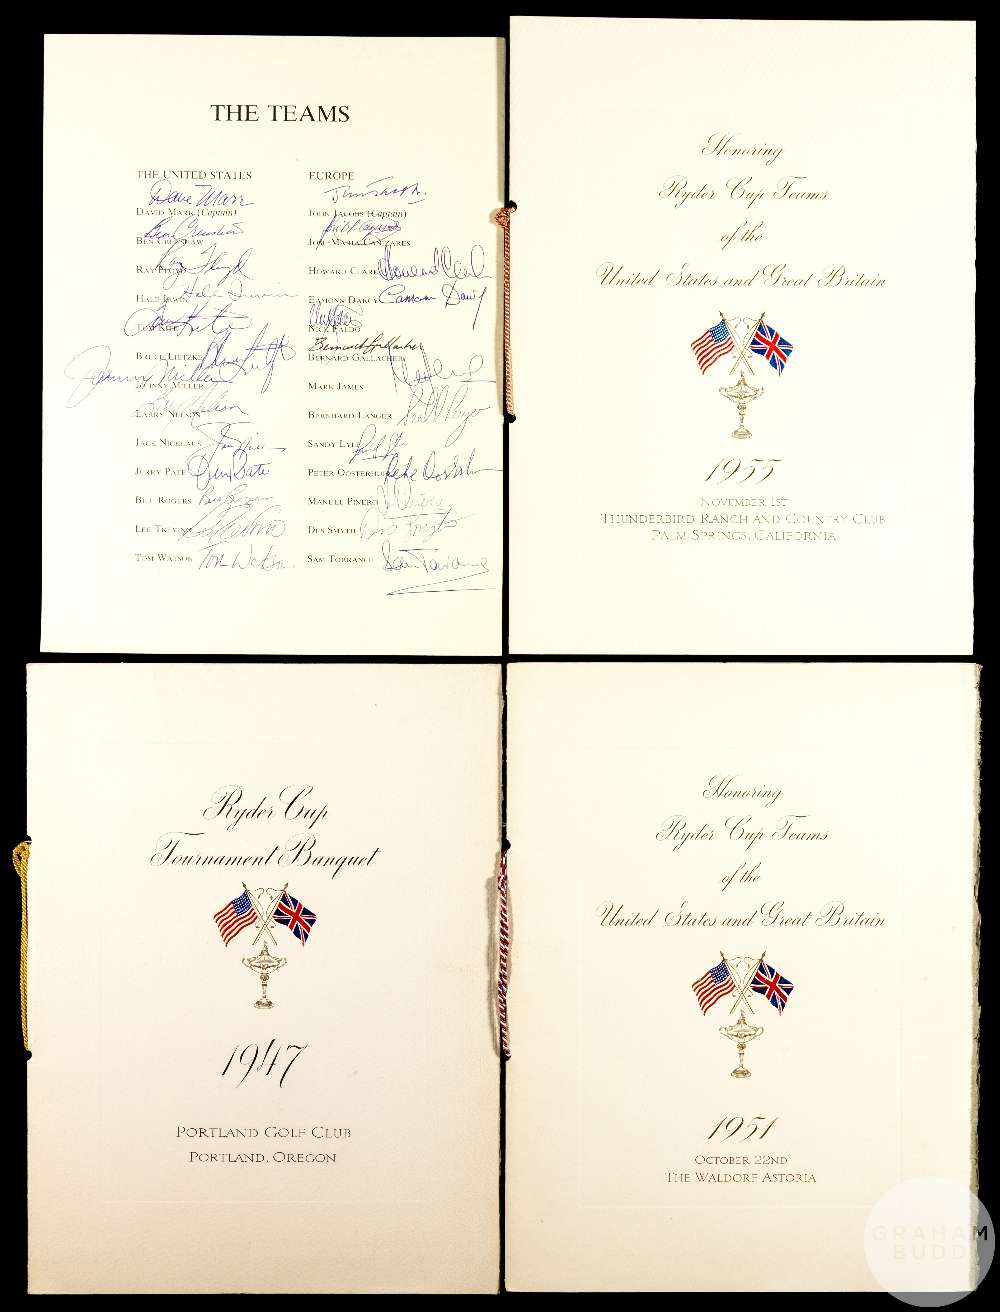 THE TEAMS
THE UNITED STATES
Dave Marr
DAVID MARR (Captain)
Ben Crenshaw
BEN CRENSHAW
RAY FLOYD
Ray Floyd
HALE IRWIN
Hale Irwin
TOM KITE
Tom Kite
BRUCE LIETZKE
Bruce Lietzke
Johnny Miller
JOHNNY MILLER
Larry Nelson
LARRY NELSON
JACK NICKLAUS
JERRY PATE
Jerry Pate
BILL ROGERS
Bill Rogers
LEE TREVINO
Lee Trevino
TOM WATSON
Tom Watson
EUROPE
JOHN JACOBS (Captain)
JOSE-MARIA CANIZARES
HOWARD CLARK
Howard Clark
EAMONN DARCY
Eamonn Darcy
NICK FALDO
Bernard Gallacher
BERNARD GALLACHER
MARK JAMES
BERNHARD LANGER
SANDY LYLE
PETER OOSTERHUIS
Peter Oosterhuis
MANUEL PINERO
DES SMYTH
Des Smyth
SAM TORRANCE
Sam Torrance
Honoring
Ryder Cup Teams
of the
United States and Great Britain
1955
NOVEMBER 1ST
THUNDERBIRD RANCH AND COUNTRY CLUB
PALM SPRINGS, CALIFORNIA
Ryder Cup
Tournament Banquet
1947
PORTLAND GOLF CLUB
PORTLAND, OREGON
Honoring
Ryder Cup Teams
of the
United States and Great Britain
1951
OCTOBER 22ND
THE WALDORF ASTORIA
GRAHAM
BUDD